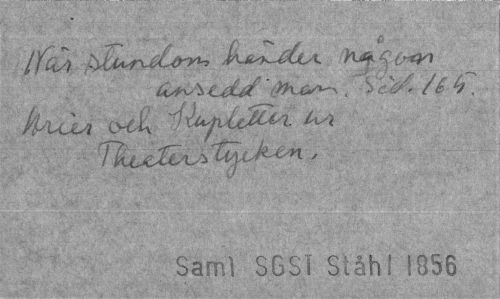 När stundom händer någon
ansedd man. Sid. 165.
Arier och Kupletter ur
Theaterstycken.
Saml SGST Ståhl 1856